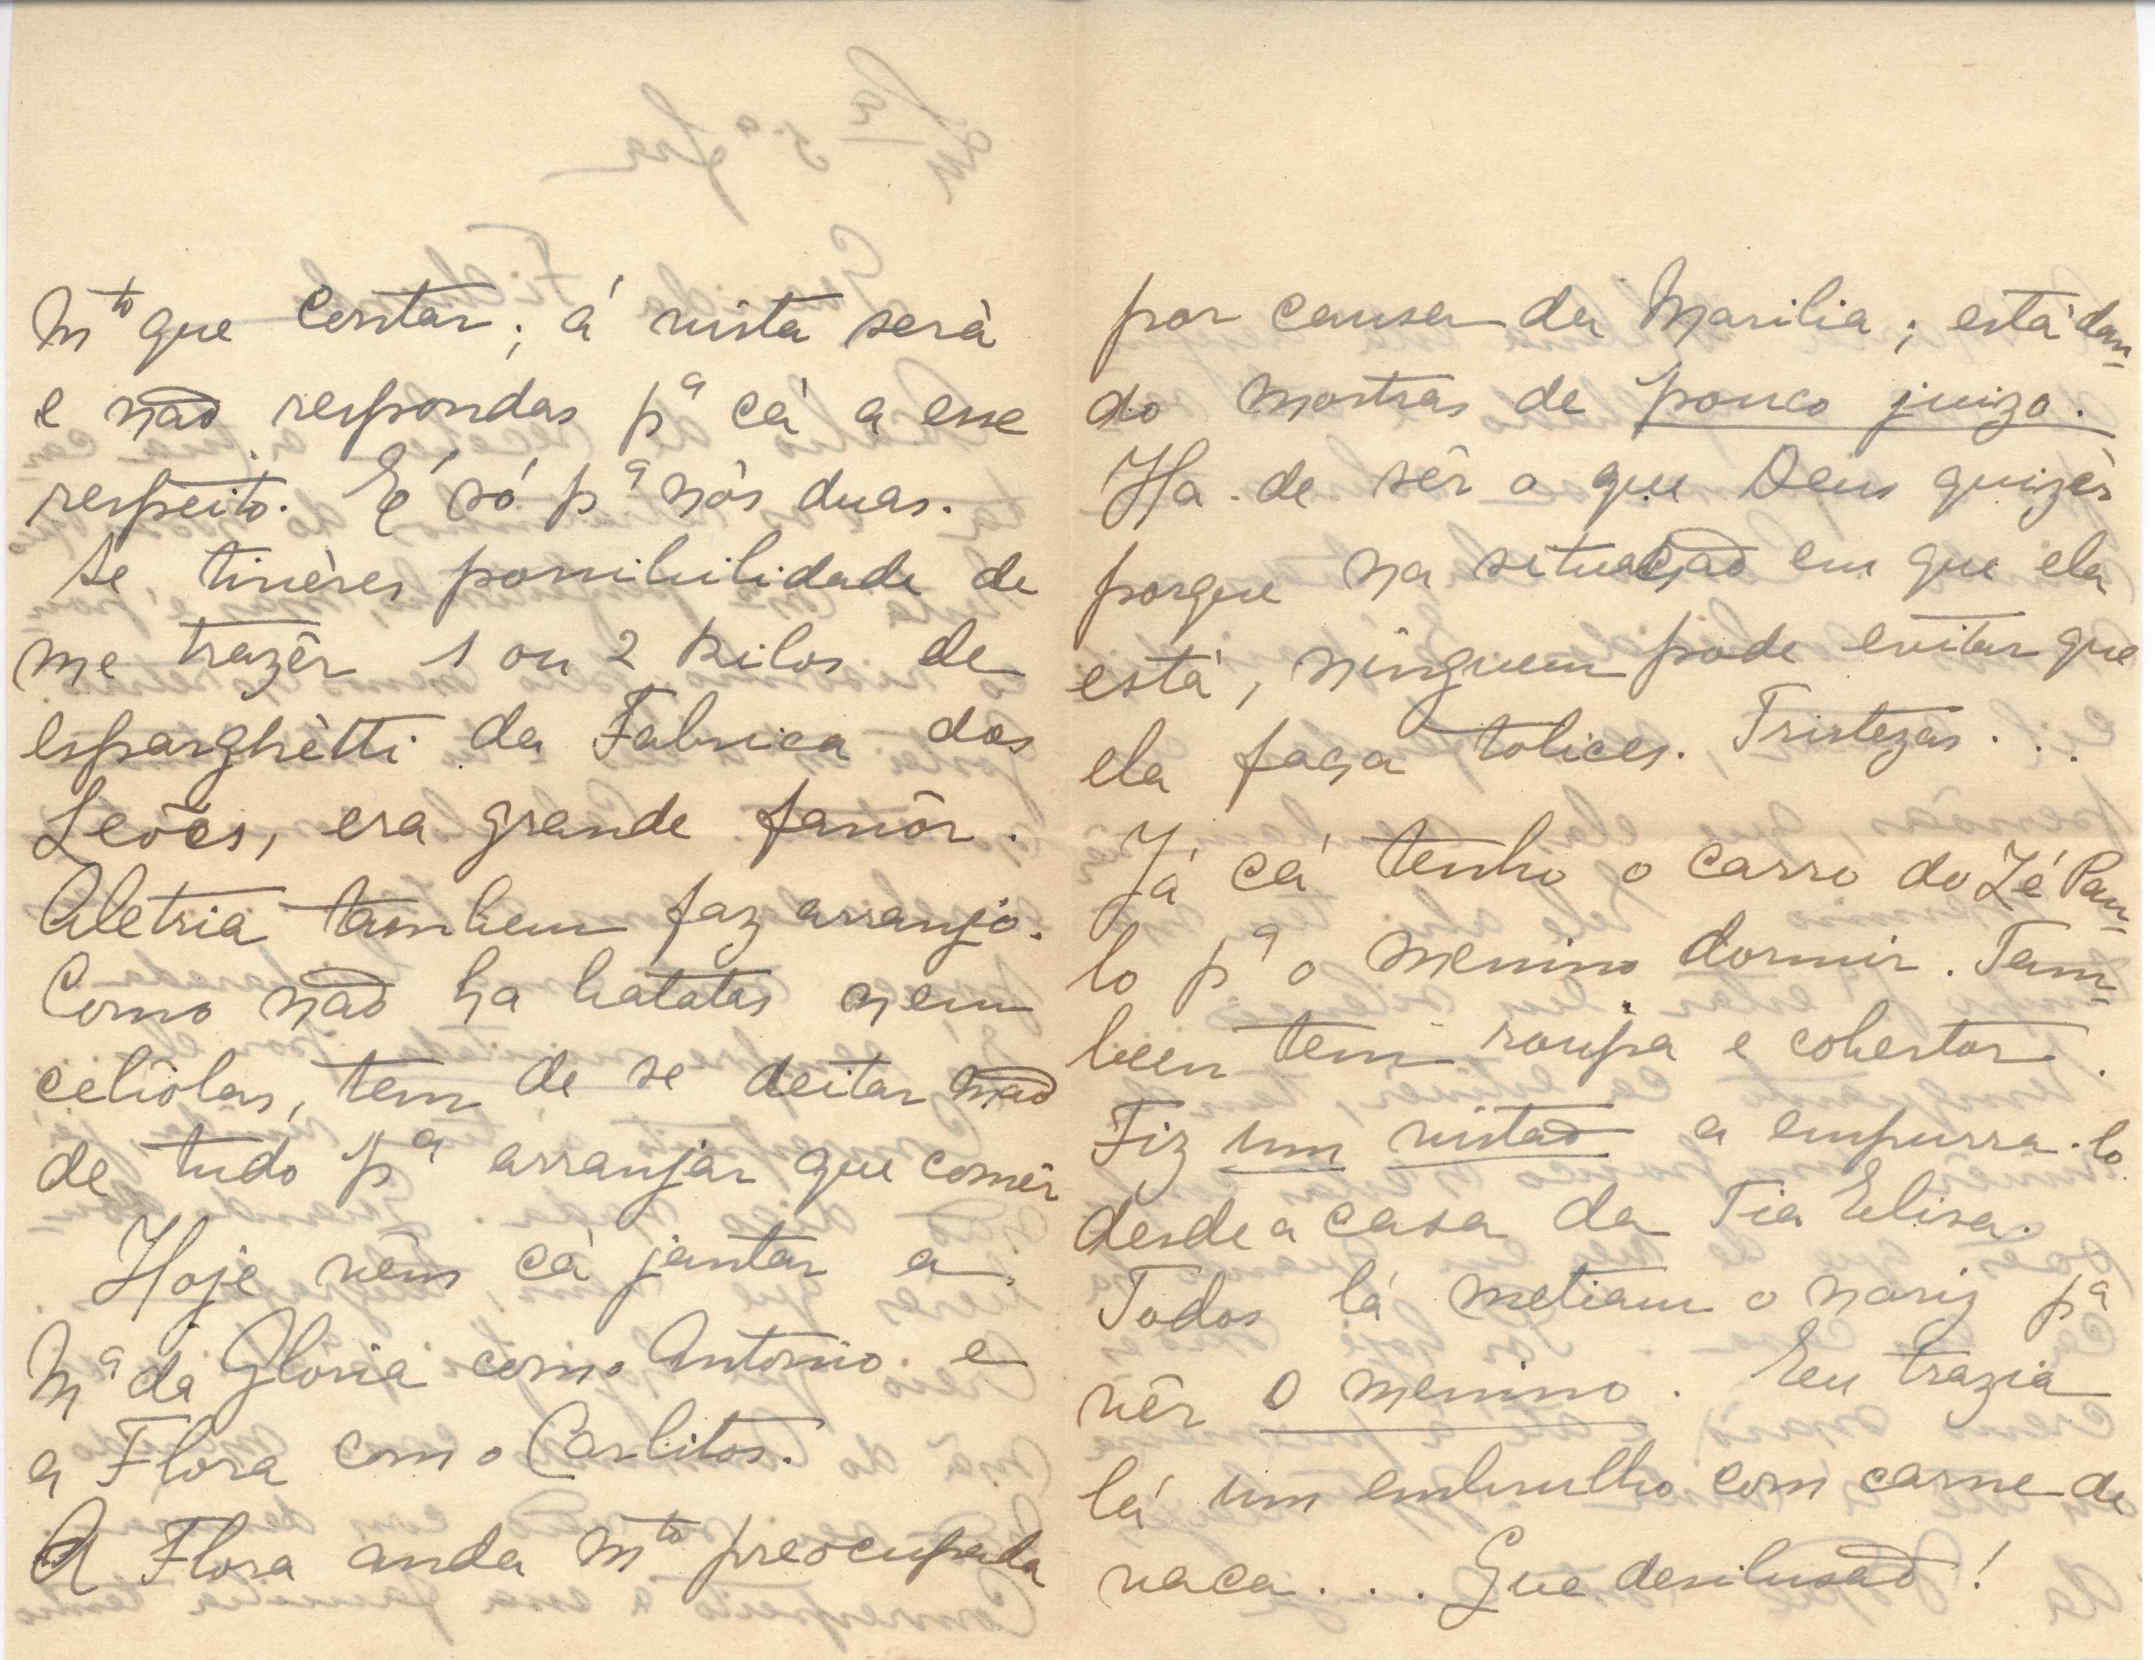 Mto que contar; á vista será
e não respondas pª cá a esse
respeito. É só pª nós duas.
Se tivères possibilidade de
me trazêr 1 ou 2 kilos de
esparghètti da Fabrica dos
Leões, era grande favôr.
Aletria tambem faz arranjo.
Como não ha batatas nem
cebôlas, tem de se deitar mão
de tudo pª arranjar que comêr
Hoje vêm cá jantar a
Mª da Gloria com o Antonio e
a Flora com o Carlitos.
A Flora anda mto preocupada
por causa da Marilia; está dan-
do mostras de pouco juizo.
Ha-de sêr o que Deus quizér
porque na situação em que ela
está, ninguem pode evitar que
ela faça tolices. Tristezas...
Já cá tenho o carro do Zé Pau-
lo pª o menino dormir. Tam-
bem tem roupa e cobertor.
Fiz um vistão a empurra-lo
desde a casa da Tia Elisa.
Todos lá metiam o nariz pª
vêr o menino. Eu trazia
lá um embrulho com carne de
vaca... Que desilusão!